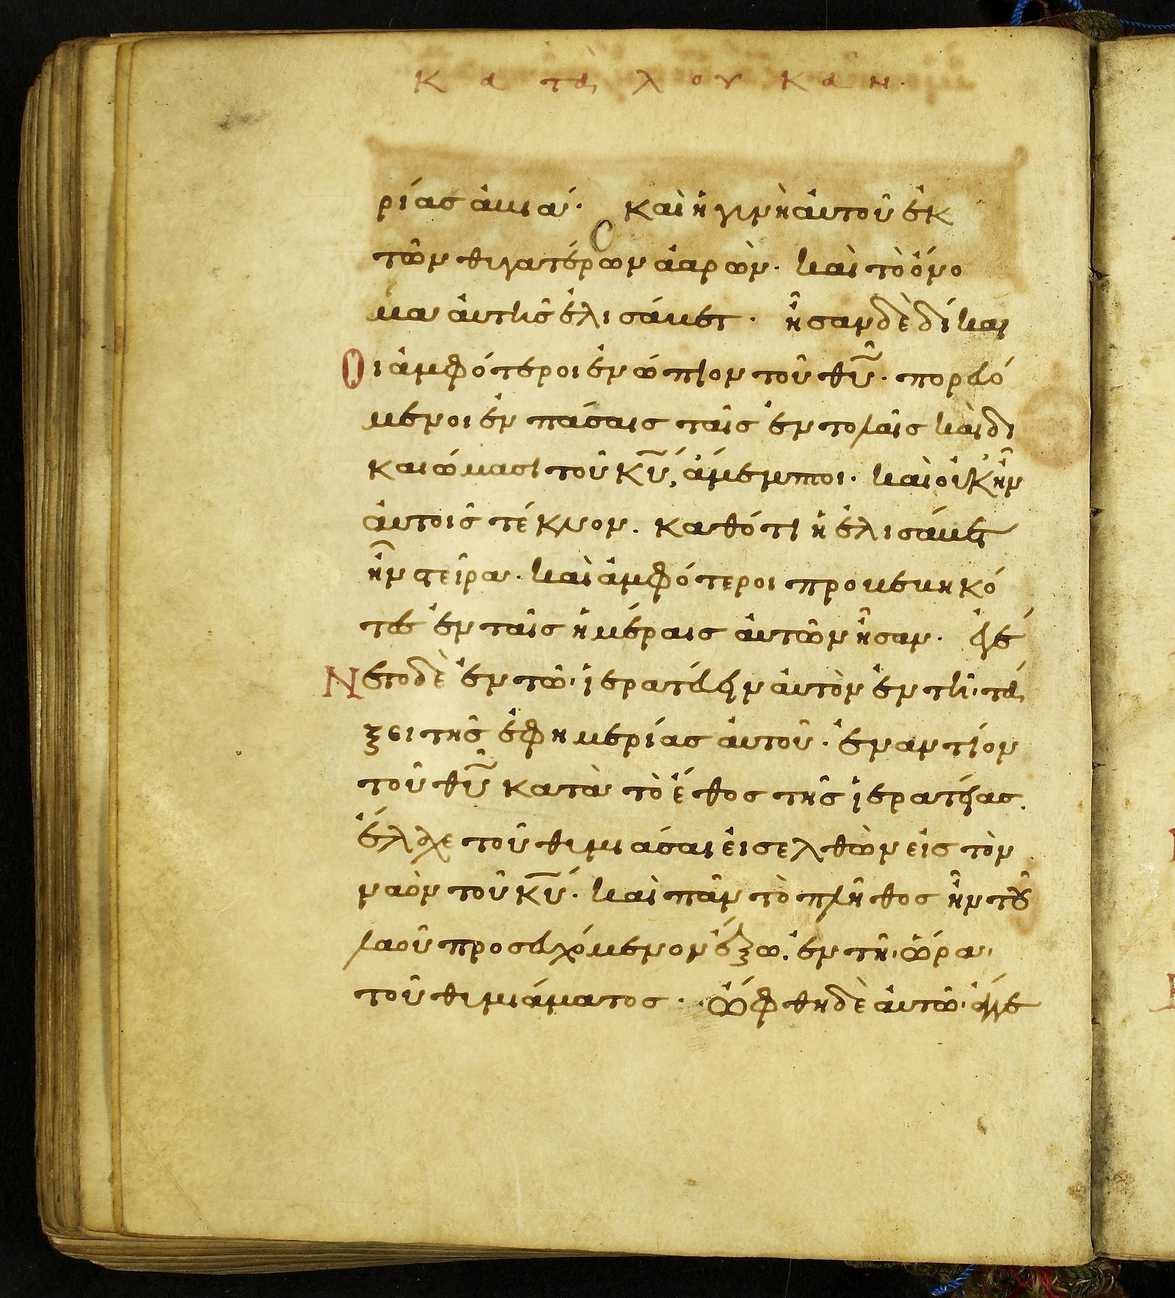 Κατὰ λουκαν·
ρίας ἀβιά· καὶ ἡ γυνὴ ἀυτοῦ ἐκ
τῶν θυγατέρων ἀαρών· καὶ τὸ ὄνο
μα ἀυτῆς ἐλισάβετ· ἦσαν δὲ δίκαι
οι ἀμφότεροι ἐνώπιον τοῦ θῦ· πορευό
μενοι ἐν πάσαις ταῖς ἐντολαῖς καὶ δι
καιώμασι τοῦ κῦ, ἄμεμπτοι· καὶ οὐκ ἦν
ἀυτοῖς τέκνον. καθότι ἡ ἐλισάβετ
ἦν στεῖρα· καὶ ἀμφότεροι προβεβηκό
τες ἐν ταῖς ἡμέραις ἀυτῶν ἦσαν· ἐγέ
Νετο δὲ ἐν τῶ· ἱερατεύειν ἀυτὸν ἐν τῆ· τά
ξει τῆς ἐφημερίας ἀυτοῦ· ἐναντίον
τοῦ θῦ κατὰ τὸ ἔθος τῆς ἱερατείας.
ἔλαχε τοῦ θυμιάσαι ἐισελθὼν εἰς τὸν
ναὸν τοῦ κῦ· καὶ πᾶν τὸ πλῆθος ἦν τοῦ
λαοῦ προσευχόμενον ἔξω. ἐν τῆ· ὥρα·
τοῦ θυμιάματος· ὤφθη δὲ ἀυτῶ· ἄγγε